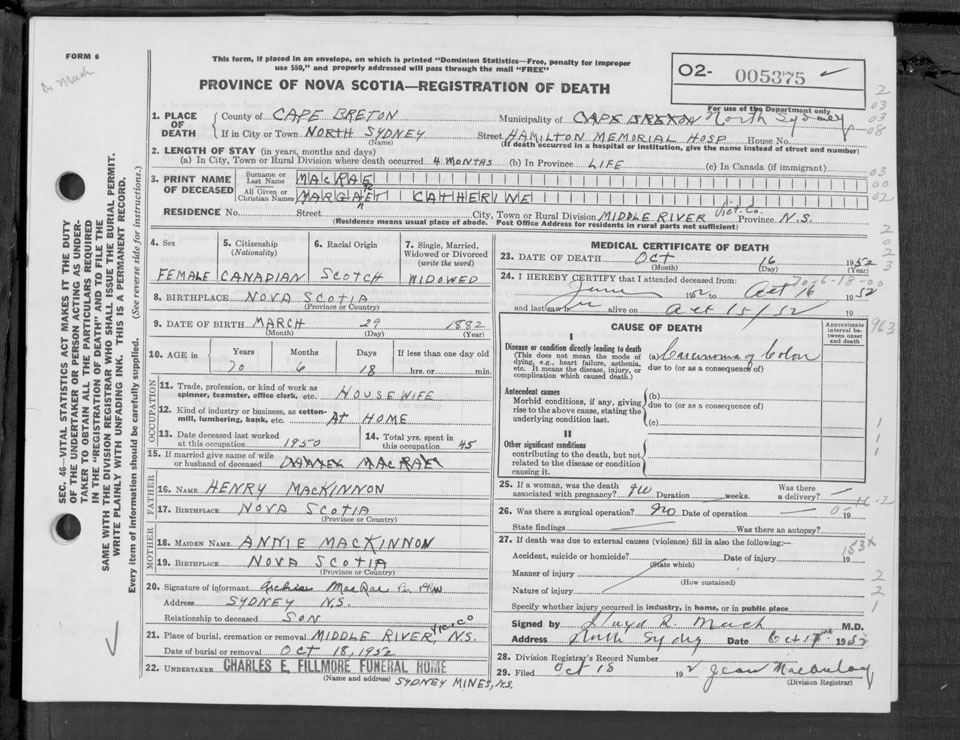 FORM 6
This form, if placed in an envelope, on which is printed "Dominion Statistics—Free, penalty for improper
use $50," and properly addressed will pass through the mail "FREE"
PROVINCE OF NOVA SCOTIA—REGISTRATION OF DEATH
O2- 005375
For use of the Department only
1. PLACE OF DEATH
County of CAPE BRETON Municipality of CAPE BRETON North Sydney
If in City or Town NORTH SYDNEY Street HAMILTON MEMORIAL HOSP House No.
(Name) (If death occurred in a hospital or institution, give the name instead of street and number)
2. LENGTH OF STAY (in years, months and days)
(a) In City, Town or Rural Division where death occurred 4 MONTHS (b) In Province LIFE (c) In Canada (if immigrant)
3. PRINT NAME OF DECEASED
Surname or Last Name MACRAE
All Given or Christian Names MARGARET CATHERINE
RESIDENCE No. Street City, Town or Rural Division MIDDLE RIVER Vict. Co. Province N.S.
(Residence means usual place of abode. Post Office Address for residents in rural parts not sufficient)
4. Sex
FEMALE
5. Citizenship (Nationality)
CANADIAN
6. Racial Origin
SCOTCH
7. Single, Married, Widowed or Divorced (write the word)
WIDOWED
8. BIRTHPLACE NOVA SCOTIA
(Province or Country)
9. DATE OF BIRTH MARCH 29 1882
(Month) (Day) (Year)
10. AGE in Years Months Days If less than one day old
70 6 18 hrs. or min.
OCCUPATION
11. Trade, profession, or kind of work as
spinner, teamster, office clerk, etc. HOUSEWIFE
12. Kind of industry or business, as cotton-
mill, lumbering, bank, etc. AT HOME
13. Date deceased last worked
at this occupation 1950
14. Total yrs. spent in
this occupation 45
15. If married give name of wife
or husband of deceased DANIEL MACRAE
FATHER
16. NAME HENRY MACKINNON
17. BIRTHPLACE NOVA SCOTIA
(Province or Country)
MOTHER
18. MAIDEN NAME ANNIE MACKINNON
19. BIRTHPLACE NOVA SCOTIA
(Province or Country)
20. Signature of informant Archie MacRae
Address SYDNEY N.S.
Relationship to deceased SON
21. Place of burial, cremation or removal MIDDLE RIVER, VIC. CO N.S.
Date of burial or removal OCT 18, 1952
22. UNDERTAKER CHARLES E. FILLMORE FUNERAL HOME
(Name and address) SYDNEY MINES, N.S.
MEDICAL CERTIFICATE OF DEATH
23. DATE OF DEATH OCT 16 1952
(Month) (Day) (Year)
24. I HEREBY CERTIFY that I attended deceased from:
June 1952 to Oct 16 1952
and last saw alive on Oct 15/52 19
CAUSE OF DEATH
Approximate interval between onset and death
I
Disease or condition directly leading to death
(This does not mean the mode of
dying, e.g., heart failure, asthenia,
etc. It means the disease, injury, or
complication which caused death.)
(a) Carcinoma of Colon
due to (or as a consequence of)
Antecedent causes
Morbid conditions, if any, giving
rise to the above cause, stating the
underlying condition last
(b)
due to (or as a consequence of)
(c)
II
Other significant conditions
contributing to the death, but not
related to the disease or condition
causing it.
25. If a woman, was the death
associated with pregnancy? no Duration weeks. Was there a delivery? —
26. Was there a surgical operation? No Date of operation — 19
State findings Was there an autopsy?
27. If death was due to external causes (violence) fill in also the following:—
Accident, suicide or homicide? Date of injury 19
(State which)
Manner of injury
(How sustained)
Nature of injury
Specify whether injury occurred in industry, in home, or in public place
Signed by Lloyd R. Meech M.D.
Address North Sydney Date Oct 17th 1952
28. Division Registrar's Record Number
29. Filed Oct 18 1952 Jean MacAulay
(Division Registrar)
SEC. 46—VITAL STATISTICS ACT MAKES IT THE DUTY
OF THE UNDERTAKER OR PERSON ACTING AS UNDER-
TAKER TO OBTAIN ALL THE PARTICULARS REQUIRED
IN THE "REGISTRATION OF DEATH" AND TO FILE THE
SAME WITH THE DIVISION REGISTRAR WHO SHALL ISSUE THE BURIAL PERMIT.
WRITE PLAINLY WITH UNFADING INK. THIS IS A PERMANENT RECORD.
Every item of information should be carefully supplied. (See reverse for instructions.)